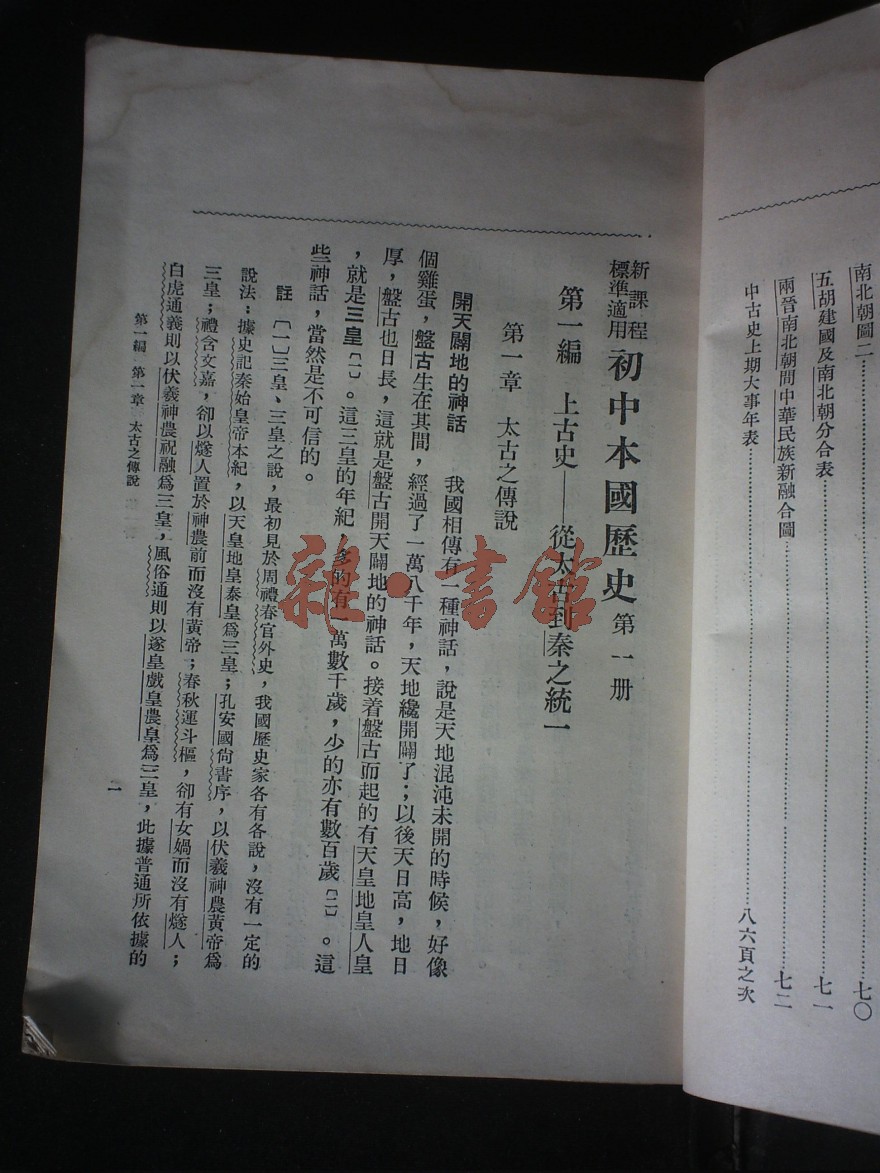 南北朝圖二……七〇
五胡建國及南北朝分合表……七一
兩晉南北朝間中華民族新融合圖……七二
中古史上期大事年表……八六頁之次
新課程標準適用 初中本國歷史 第一册
第一編 上古史——從太古到秦之統一
第一章 太古之傳說
開天闢地的神話 我國相傳有一種神話，說是天地混沌未開的時候，好像
個雞蛋，盤古生在其間，經過了一萬八千年，天地纔開闢了；以後天日高，地日
厚，盤古也日長，這就是盤古開天闢地的神話。接着盤古而起的有天皇地皇人皇
，就是三皇〔一〕。這三皇的年紀，多的有一萬數千歲，少的亦有數百歲〔二〕。這
些神話，當然是不可信的。
註〔一〕三皇、三皇之說，最初見於周禮春官外史，我國歷史家各有各說，沒有一定的
說法：據史記秦始皇帝本紀，以天皇地皇泰皇爲三皇；孔安國尚書序，以伏羲神農黃帝爲
三皇；禮含文嘉，卻以燧人置於神農前而沒有黃帝；春秋運斗樞，卻有女媧而沒有燧人；
白虎通義則以伏羲神農祝融爲三皇，風俗通則以遂皇戲皇農皇爲三皇，此據普通所依據的
第一編 第一章 太古之傳說
一
雜·書館